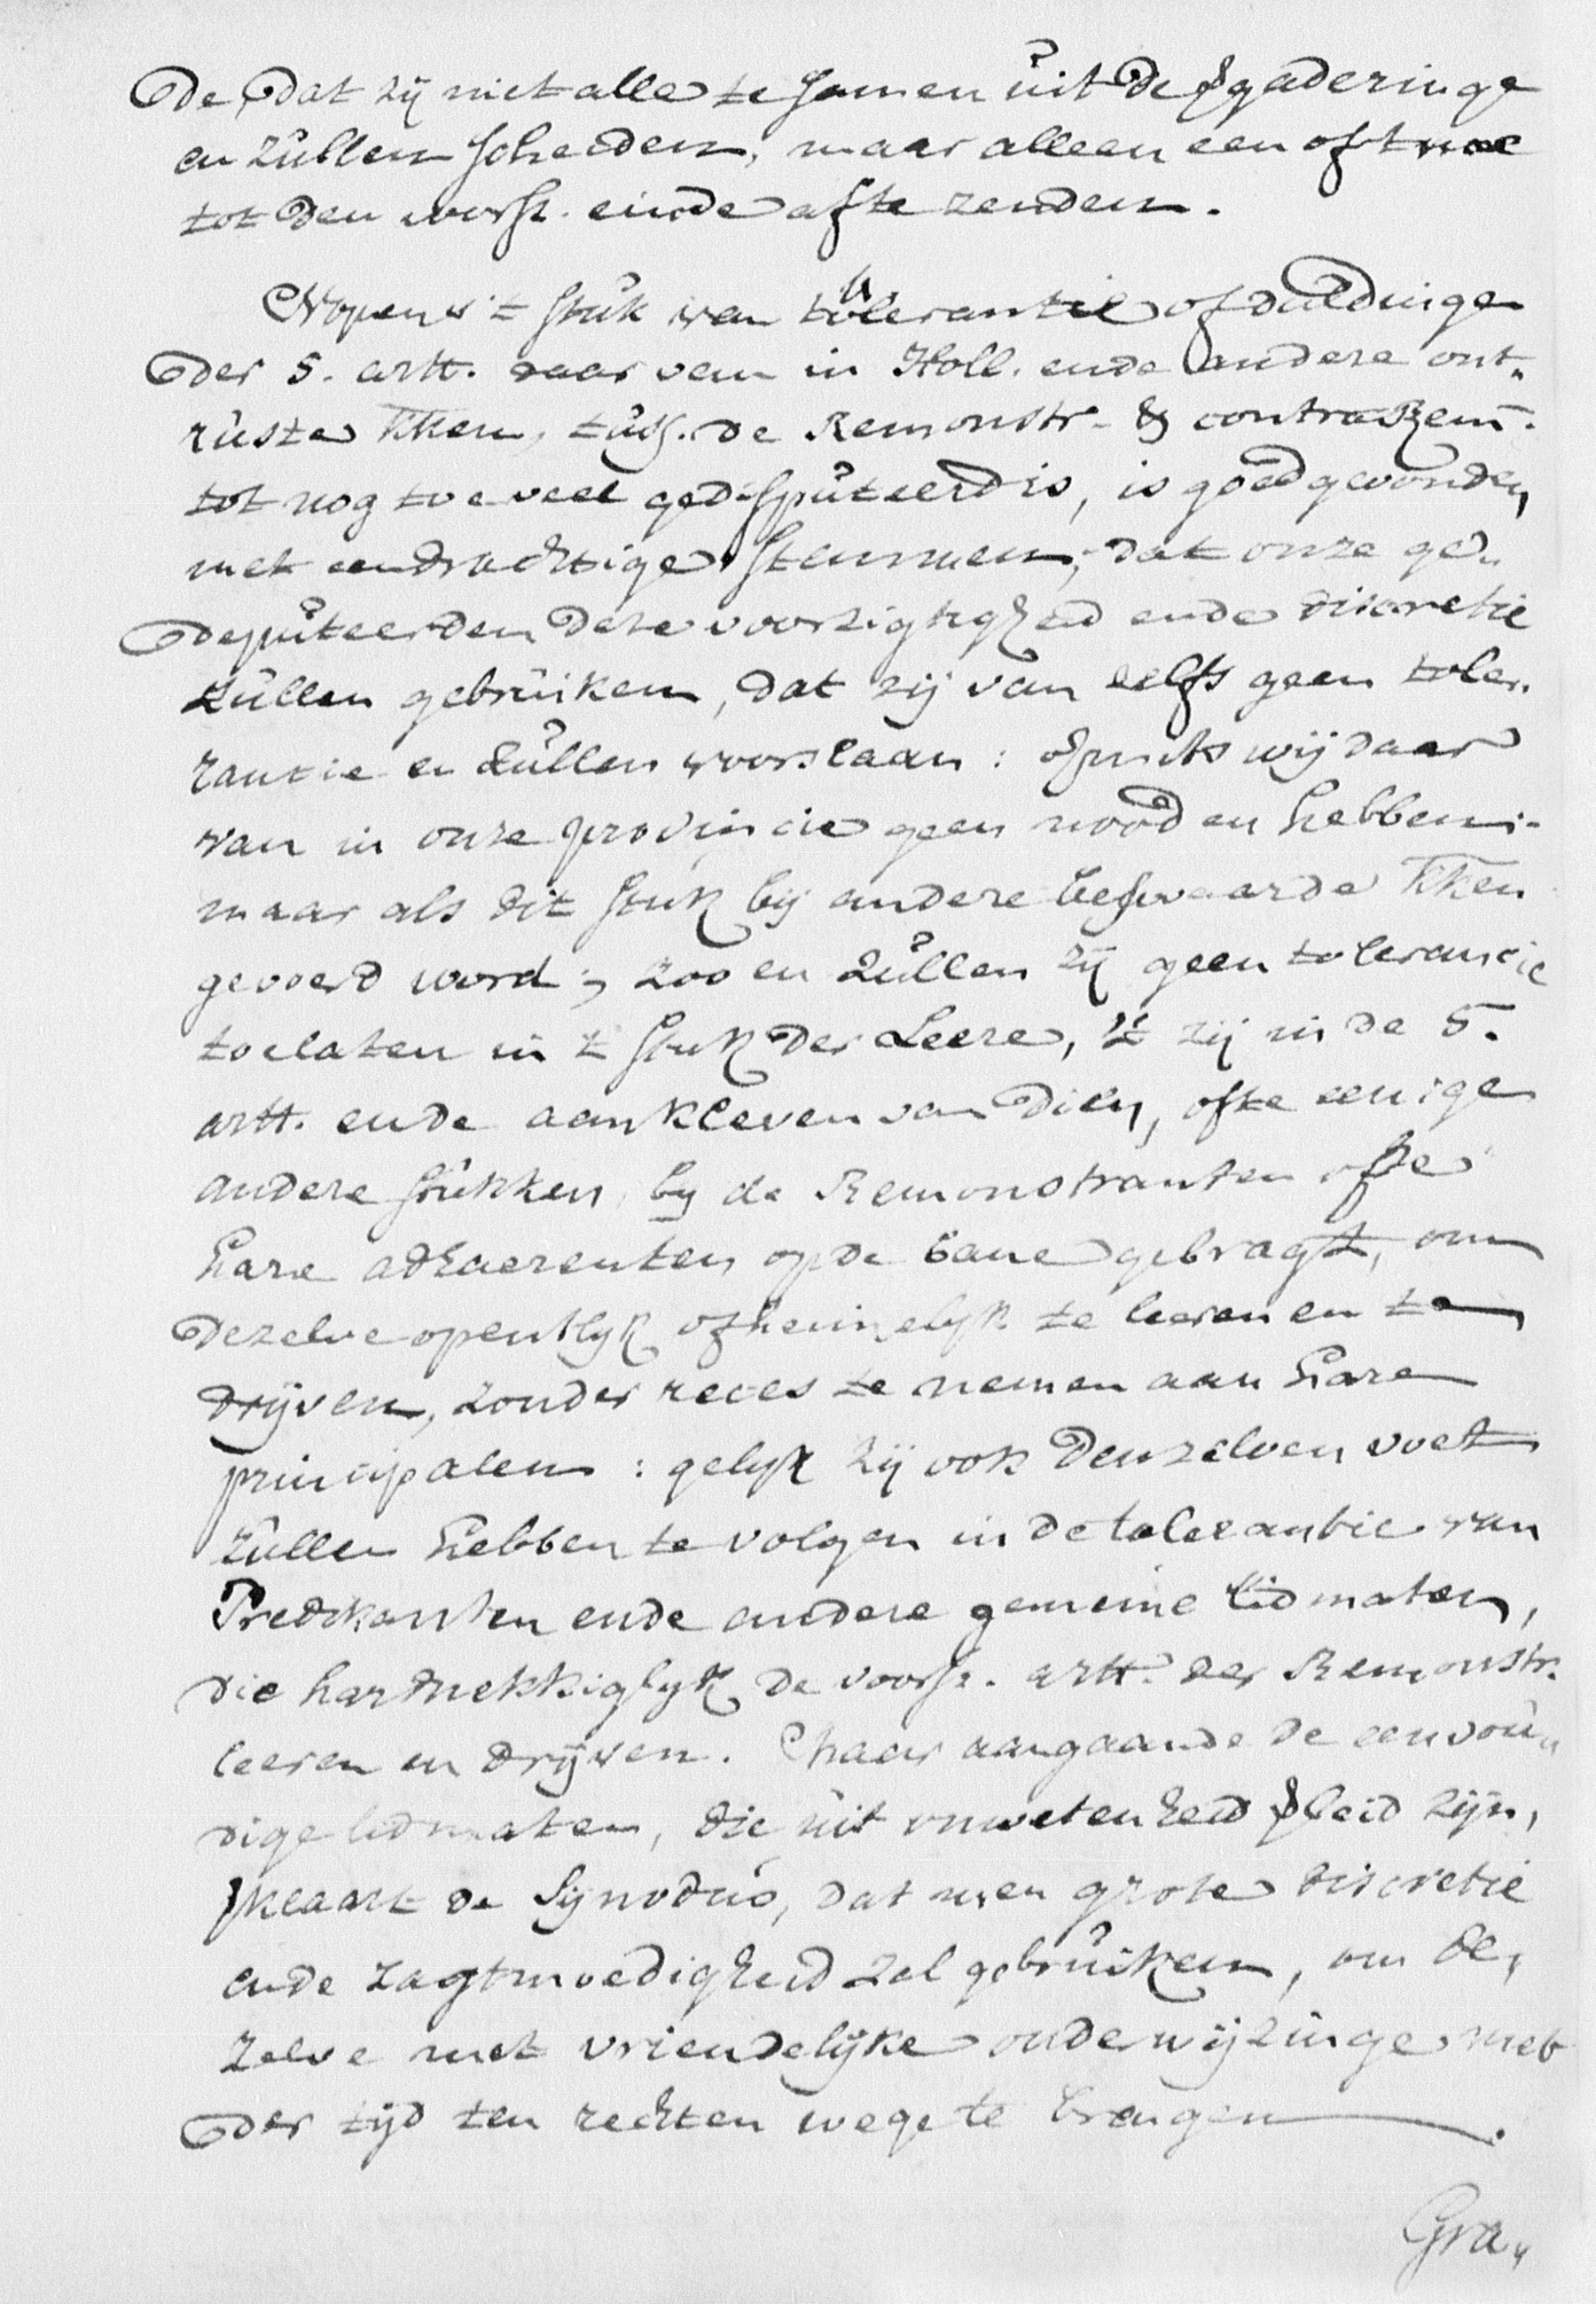 de, dat zij niet alle te samen uit de vgaderinge
en zullen scheiden, maar alleen een of twee
tot den voorsz. einde af te zenden.
Nopens 't stuk van tolerantie of duldinge
der 5. artt. daar van in Holl. ende andere ont„
ruste kken, tusz. de Remonstr. & contraRem.
tot nog toe veel gedisputeerd is, is goedgevonden,
met eendrachtige stemmen; dat onze ge„
deputeerden deze voorzigtigheid ende discretie
zullen gebruiken, dat zij van zelfs geen tole„
rantie en zullen voorslaan: opmits wij daar
van in onze provincie geen nood en hebben:
maar als dit stuk bij andere beswaarde kken
gevoerd word; zoo en zullen zij geen tolerancie
toelaten in 't stuk der Leere, 't zij in de 5.
artt. ende aankleven van dien, ofte eenige
andere stukken, by de Remonstranten ofte
hare adhaerenten op de bane gebragt, om
dezelve opentlyk of heimelyk te leeren en te
drijven, zonder reces te nemen aan hare
principalen: gelyk zij ook denzelven voet
zullen hebben te volgen in de tolerantie van
Predikanten ende andere gemeine lidmaten,
die hardnekkiglyk de voorsz. artt. der Remonstr.
leeren en drijven. Maar aangaande de eenvou„
dige lidmaten, die uit onwetenheid vleid zijn,
vklaart de Synodus, dat men grote discretie
ende zagtmoedigheid zal gebruiken, om de„
zelve met vriendelijke onderwijzinge met
der tijd ten rechten wege te brengen.
Gra„